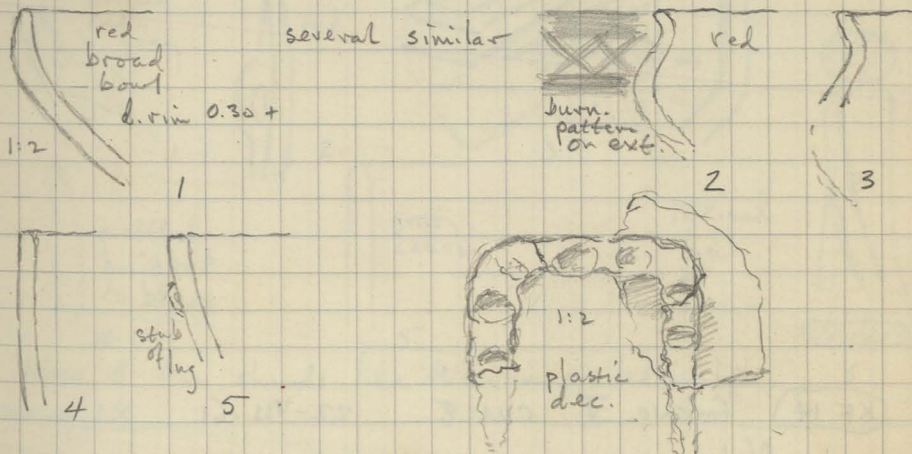 red
broad
bowl
d. rim 0.30 +
1:2
1
several similar
burn.
pattern
on ext.
red
2
3
4
stub
of lug
5
1:2
plastic
dec.